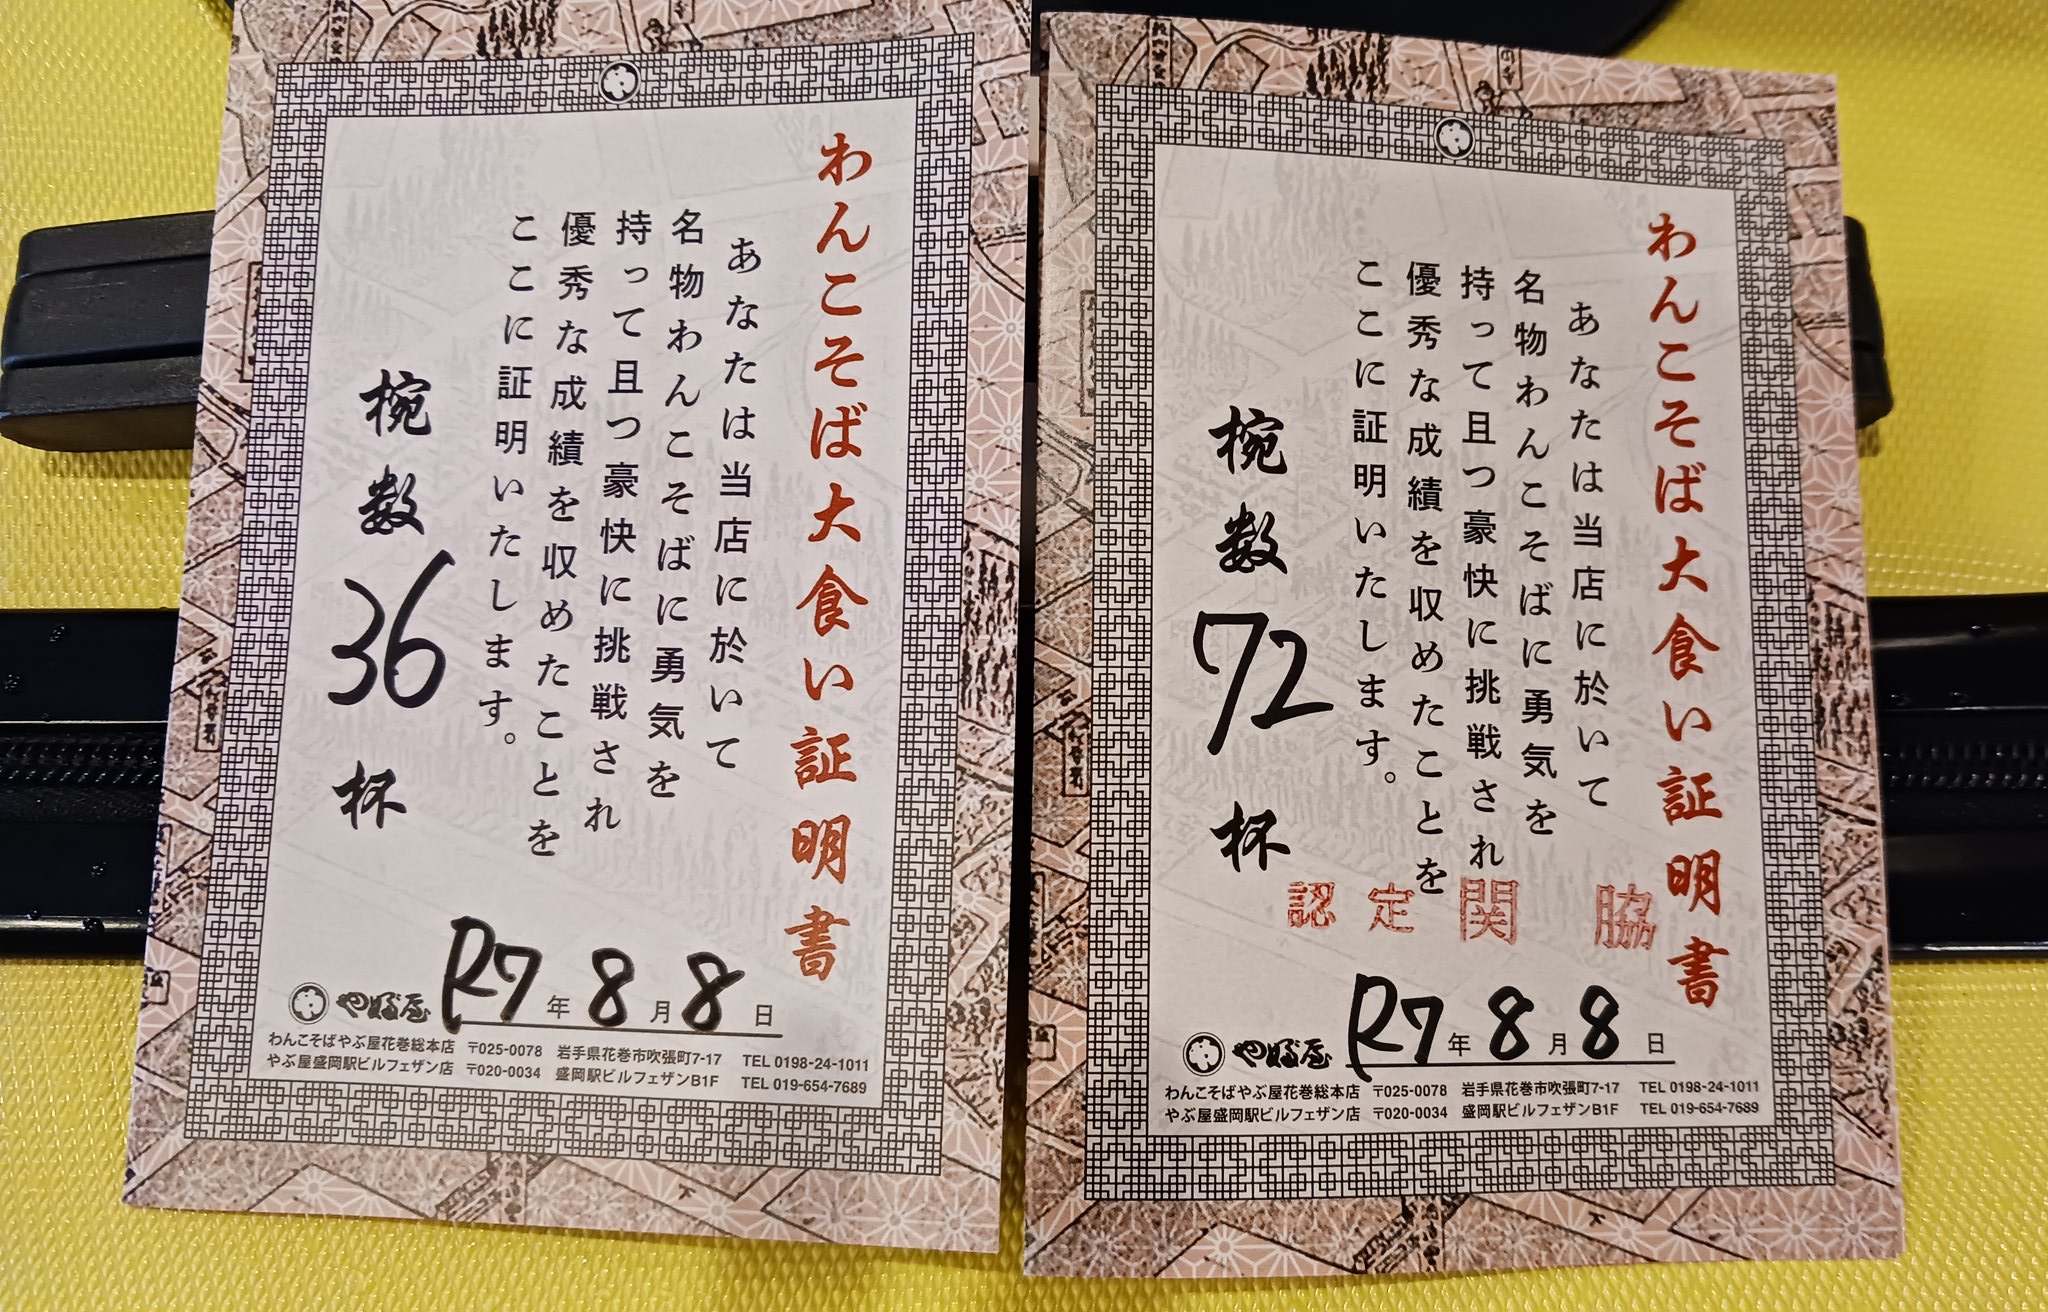 わんこそば大食い証明書
あなたは当店に於いて
名物わんこそばに勇気を
持って且つ豪快に挑戦され
優秀な成績を収めたことを
ここに証明いたします。
椀数36杯
R7年8月8日
やぶ屋
わんこそばやぶ屋花巻総本店 〒025-0078 岩手県花巻市吹張町7-17 TEL 0198-24-1011
やぶ屋盛岡駅ビルフェザン店 〒020-0034 盛岡駅ビルフェザンB1F TEL 019-654-7689
わんこそば大食い証明書
あなたは当店に於いて
名物わんこそばに勇気を
持って且つ豪快に挑戦され
優秀な成績を収めたことを
ここに証明いたします。
椀数72杯
認定関脇
R7年8月8日
やぶ屋
わんこそばやぶ屋花巻総本店 〒025-0078 岩手県花巻市吹張町7-17 TEL 0198-24-1011
やぶ屋盛岡駅ビルフェザン店 〒020-0034 盛岡駅ビルフェザンB1F TEL 019-654-7689